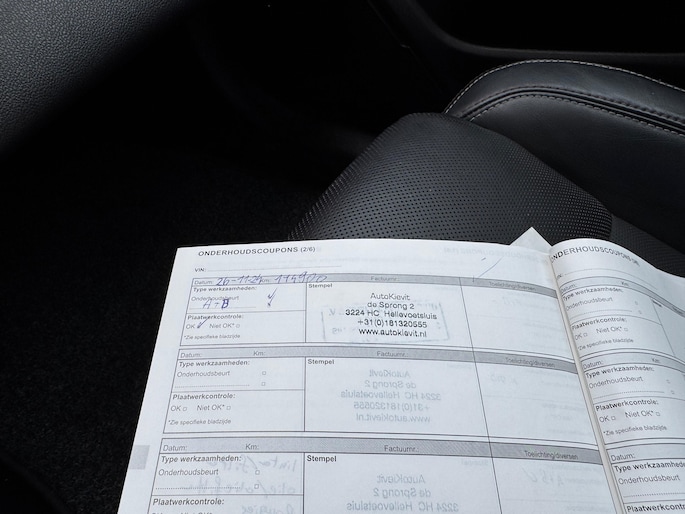 ONDERHOUDSCOUPONS (2/6)
VIN:
Datum: 26-11-21 Km: Factuurnr.: Toelichting/diversen
Type werkzaamheden:
Onderhoudsbeurt
A+B
Plaatwerkcontrole:
OK Niet OK*
*Zie specifieke bladzijde
Stempel
AutoKievit
de Sprong 2
3224 HC Hellevoetsluis
+31(0)181320555
www.autokievit.nl
Datum: Km: Factuurnr.: Toelichting/diversen
Type werkzaamheden:
Onderhoudsbeurt
Plaatwerkcontrole:
OK Niet OK*
*Zie specifieke bladzijde
Stempel
Datum: Km: Factuurnr.: Toelichting/diversen
Type werkzaamheden:
Onderhoudsbeurt
Plaatwerkcontrole:
Stempel
ONDERHOUDSCOUPONS
VIN:
Datum:
Type werkzaamheden:
Onderhoudsbeurt
Plaatwerkcontrole:
OK Niet OK*
*Zie specifieke bladzijde
Datum:
Type werkzaamheden:
Onderhoudsbeurt
Plaatwerkcontrole:
OK Niet OK*
*Zie specifieke bladzijde
Datum:
Type werkzaamheden:
Onderhoudsbeurt
Plaatwerkcontrole: